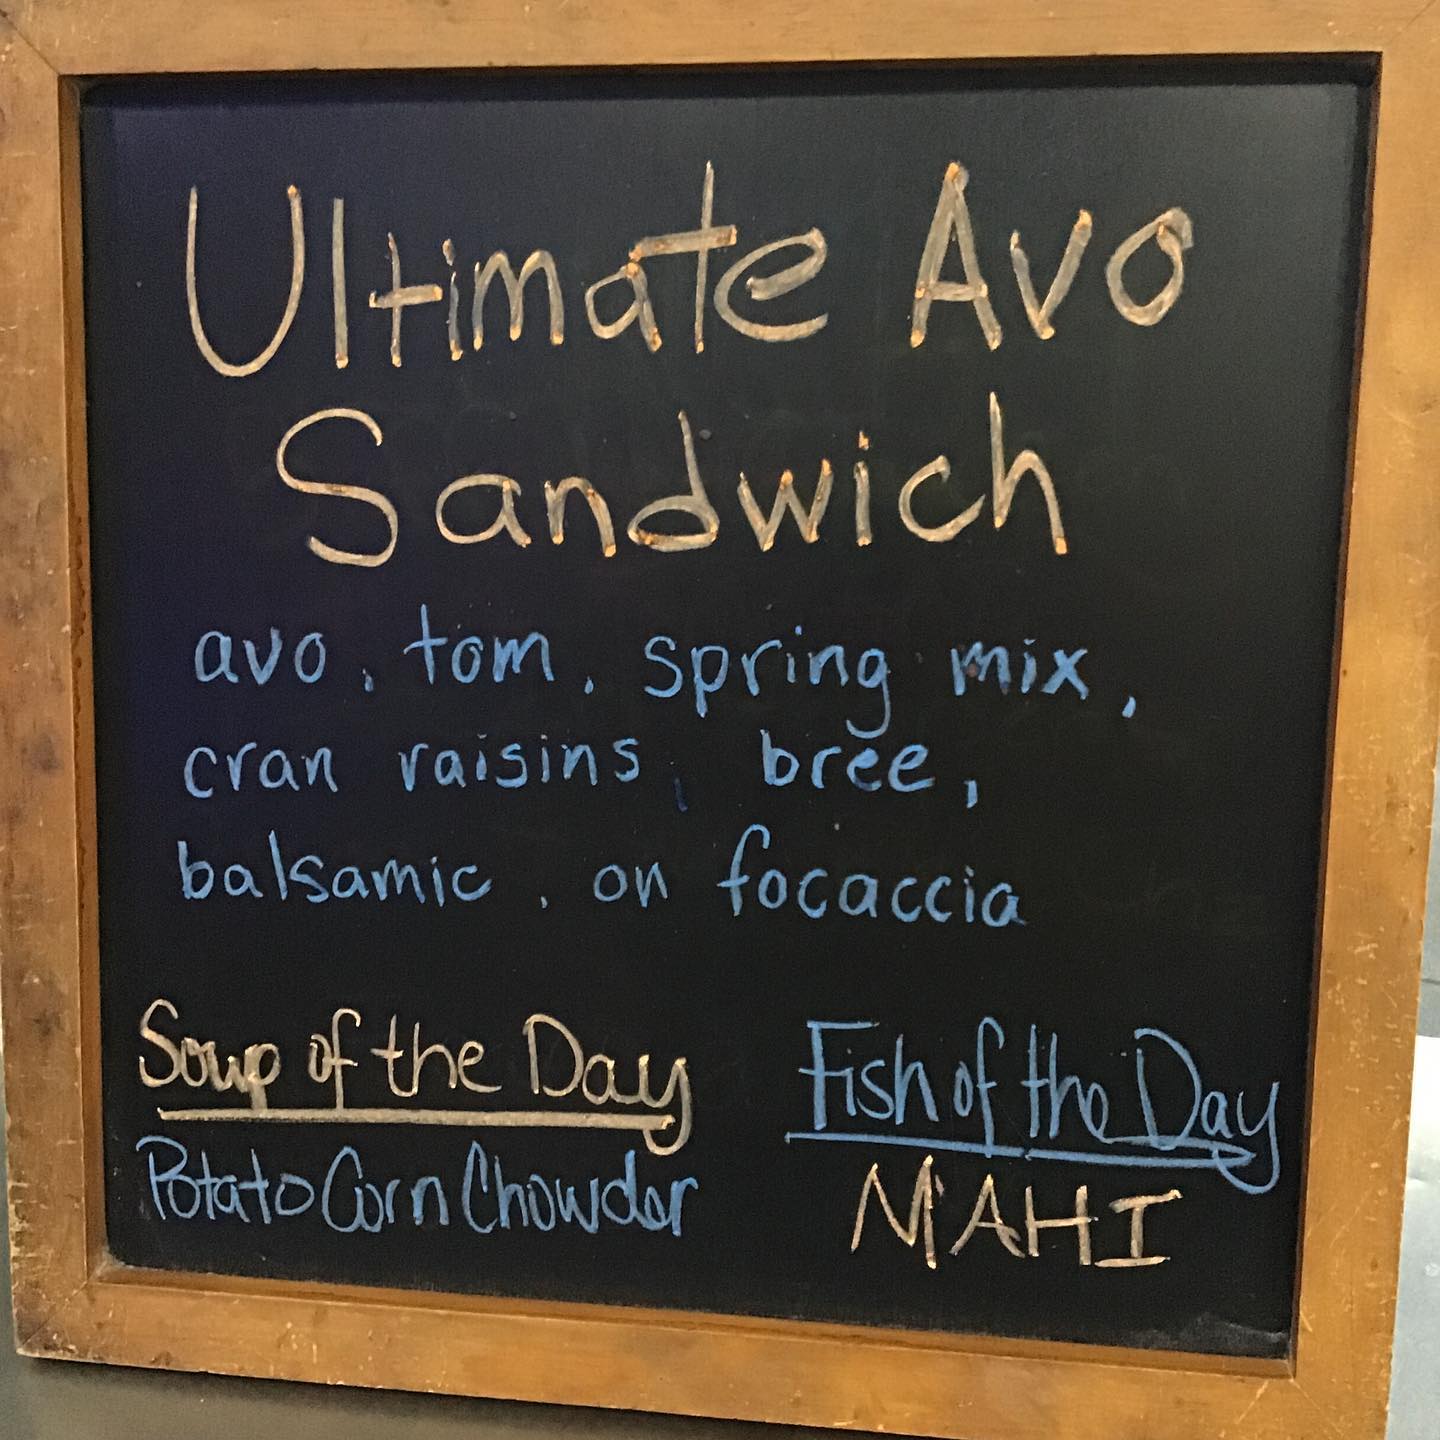 Ultimate Avo
Sandwich
avo, tom, spring mix,
cran raisins, bree,
balsamic, on focaccia
Soup of the Day
Potato Corn Chowder
Fish of the Day
MAHI